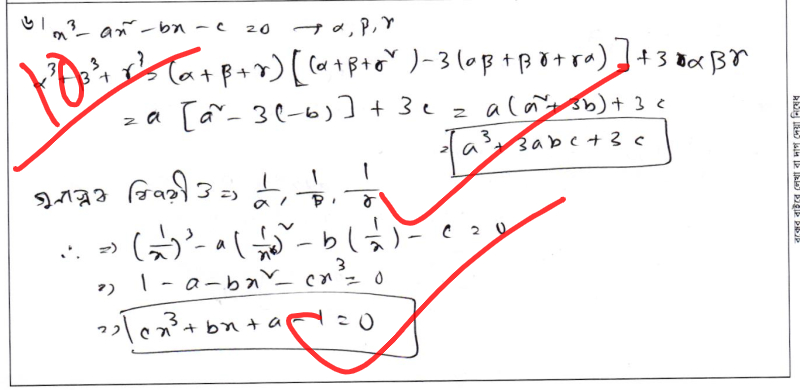 ৬। x³ - ax² - bx - c = 0 → α, β, γ
α³ + β³ + γ³ = (α + β + γ) [(α + β + γ²) - 3(αβ + βγ + γα)] + 3αβγ
10
= a [a² - 3(-b)] + 3c = a(a² + 3b) + 3c
= a³ + 3abc + 3c
মূলদ্বয়ের বিপরীত ⇒ 1/α, 1/β, 1/γ
∴ ⇒ (1/x)³ - a(1/x)² - b(1/x) - c = 0
⇒ 1 - a - bx² - cx³ = 0
⇒ cx³ + bx + a - 1 = 0
বক্সের বাইরে লেখা বা দাগ দেয়া নিষেধ